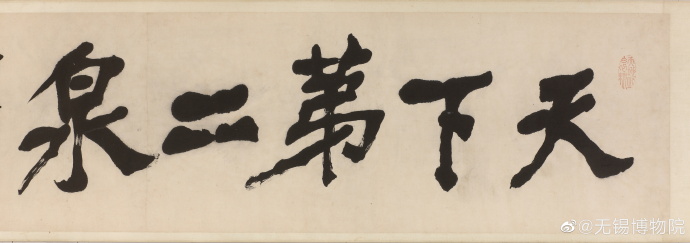 天下第二泉
@无锡博物院